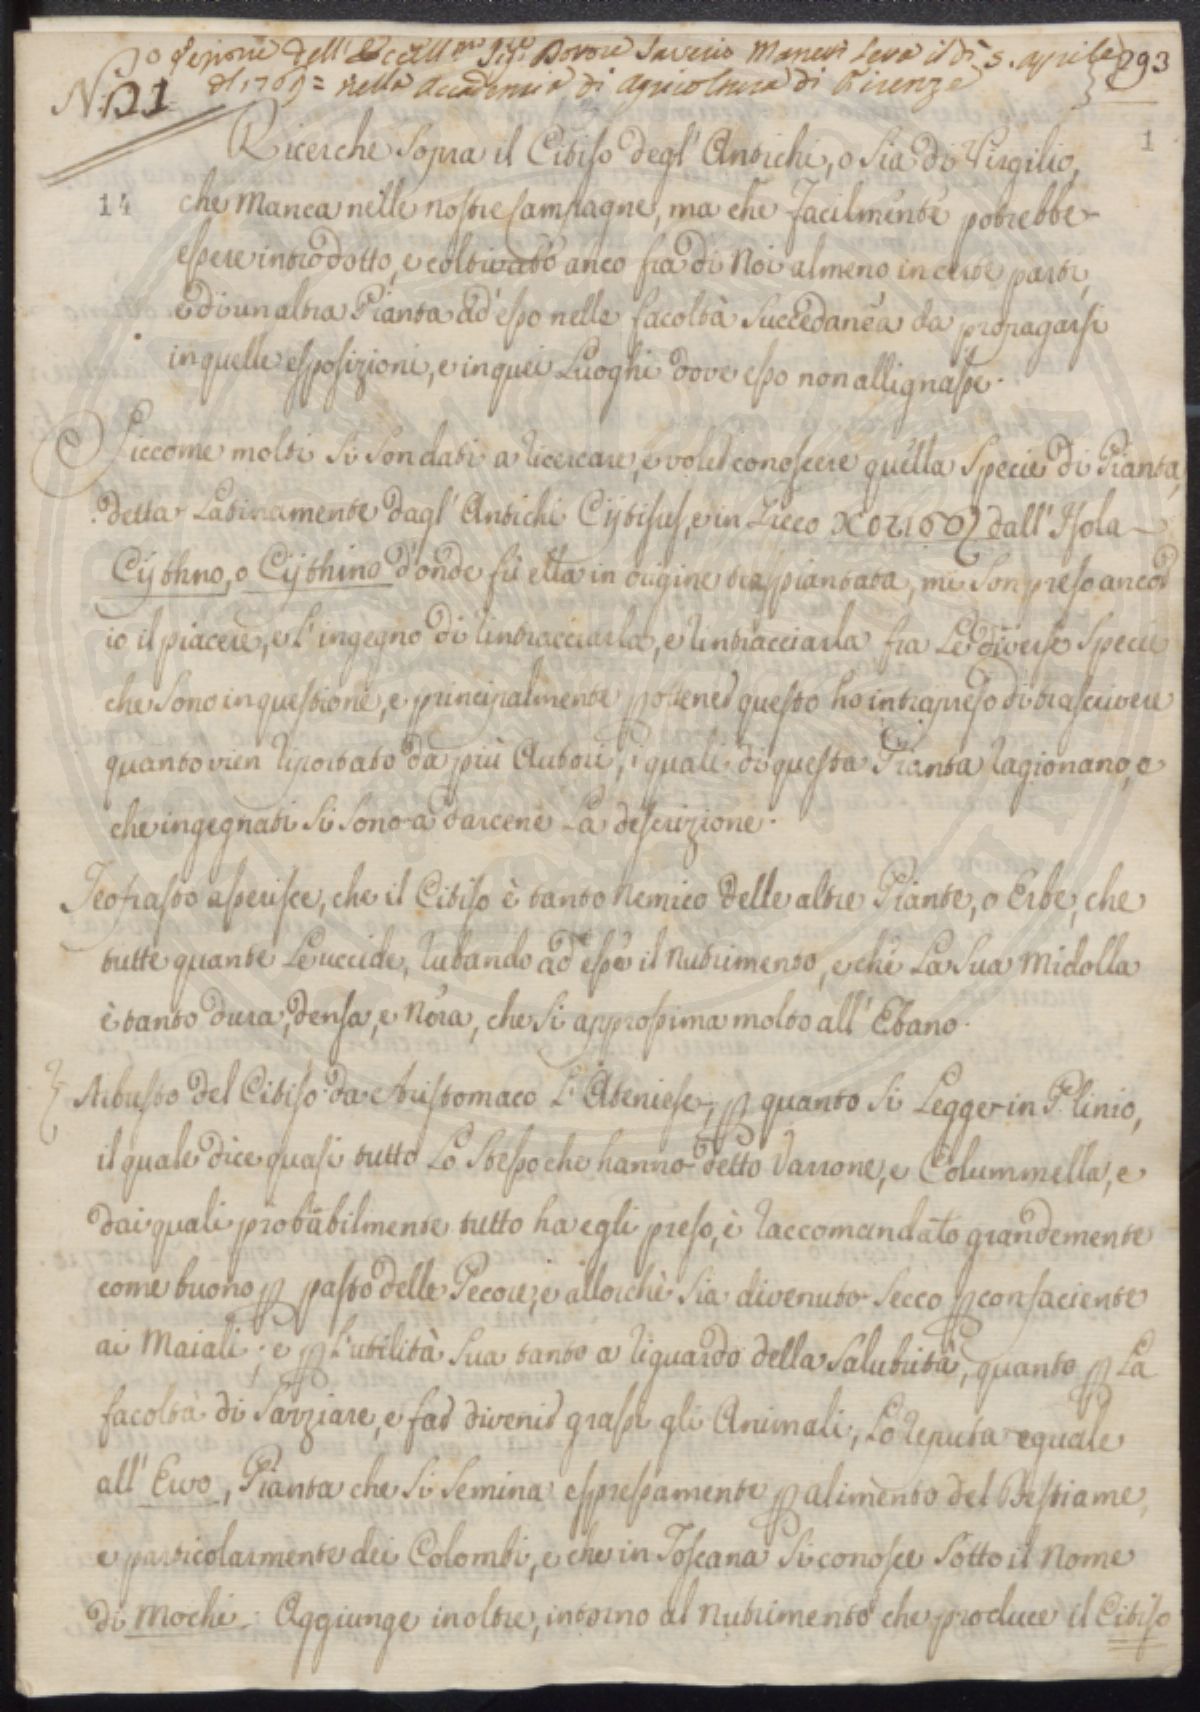 Lezione dell' Eccell.mo Sig.re Dottore Saverio Manetti Letta il dì 5. aprile 293
del 1769 = nella Accademia di Agricoltura di Firenze
N.o 121
1
14
Ricerche sopra il Citiso degl' Antichi, o sia di Virgilio,
che manca nelle nostre Campagne, ma che facilmente potrebbe
essere introdotto, e coltivato anco fra di Noi almeno in certe parti,
e di un altra Pianta ad esso nelle facoltà succedanea da propagarsi
in quelle esposizioni, e in quei Luoghi dove esso non allignasse.
Siccome molti si son dati a ricercare, e voler conoscere quella specie di Pianta,
detta Latinamente dagl' Antichi Cijtisus, e in Greco dall' Isola
Cijthno, o Cijthino d'onde fù ella in origine traspiantata, mi son preso ancor
io il piacere, e l' ingegno di rintracciarla, e rintracciarla fra Le diverse specie
che sono in questione, e principalmente p ottener questo ho intrapreso di trascrivere
quanto vien riportato da più Autori, i quali di questa Pianta ragionano, o
che ingegnati si sono a darcene La descrizione.
Teofrasto asserisce, che il Citiso è tanto nemico delle altre Piante, o Erbe, che
tutte quante Le uccide, rubando ad esse il nutrimento, e che La sua midolla
è tanto dura, densa, e nera, che si approssima molto all' Ebano.
Arbusto del Citiso da Aristomaco L' Ateniese, p quanto si Legge in Plinio,
il quale dice quasi tutto Lo stesso che hanno detto Varrone, e Colummella, e
dai quali probabilmente tutto ha egli preso, è raccomandato grandemente
come buono p pasto delle Pecore, e allorchè sia divenuto secco p confaciente
ai Maiali; e p L'utilità sua tanto a riguardo della salubrità, quanto p La
facoltà di sarziare, e far divenir grassi gli Animali, Lo reputa eguale
all' Ervo, Pianta che si semina espressamente p alimento del Bestiame,
e particolarmente dei Colombi, e che in Toscana si conosce sotto il nome
di Mochi. Aggiunge inoltre, intorno al nutrimento che produce il Citiso